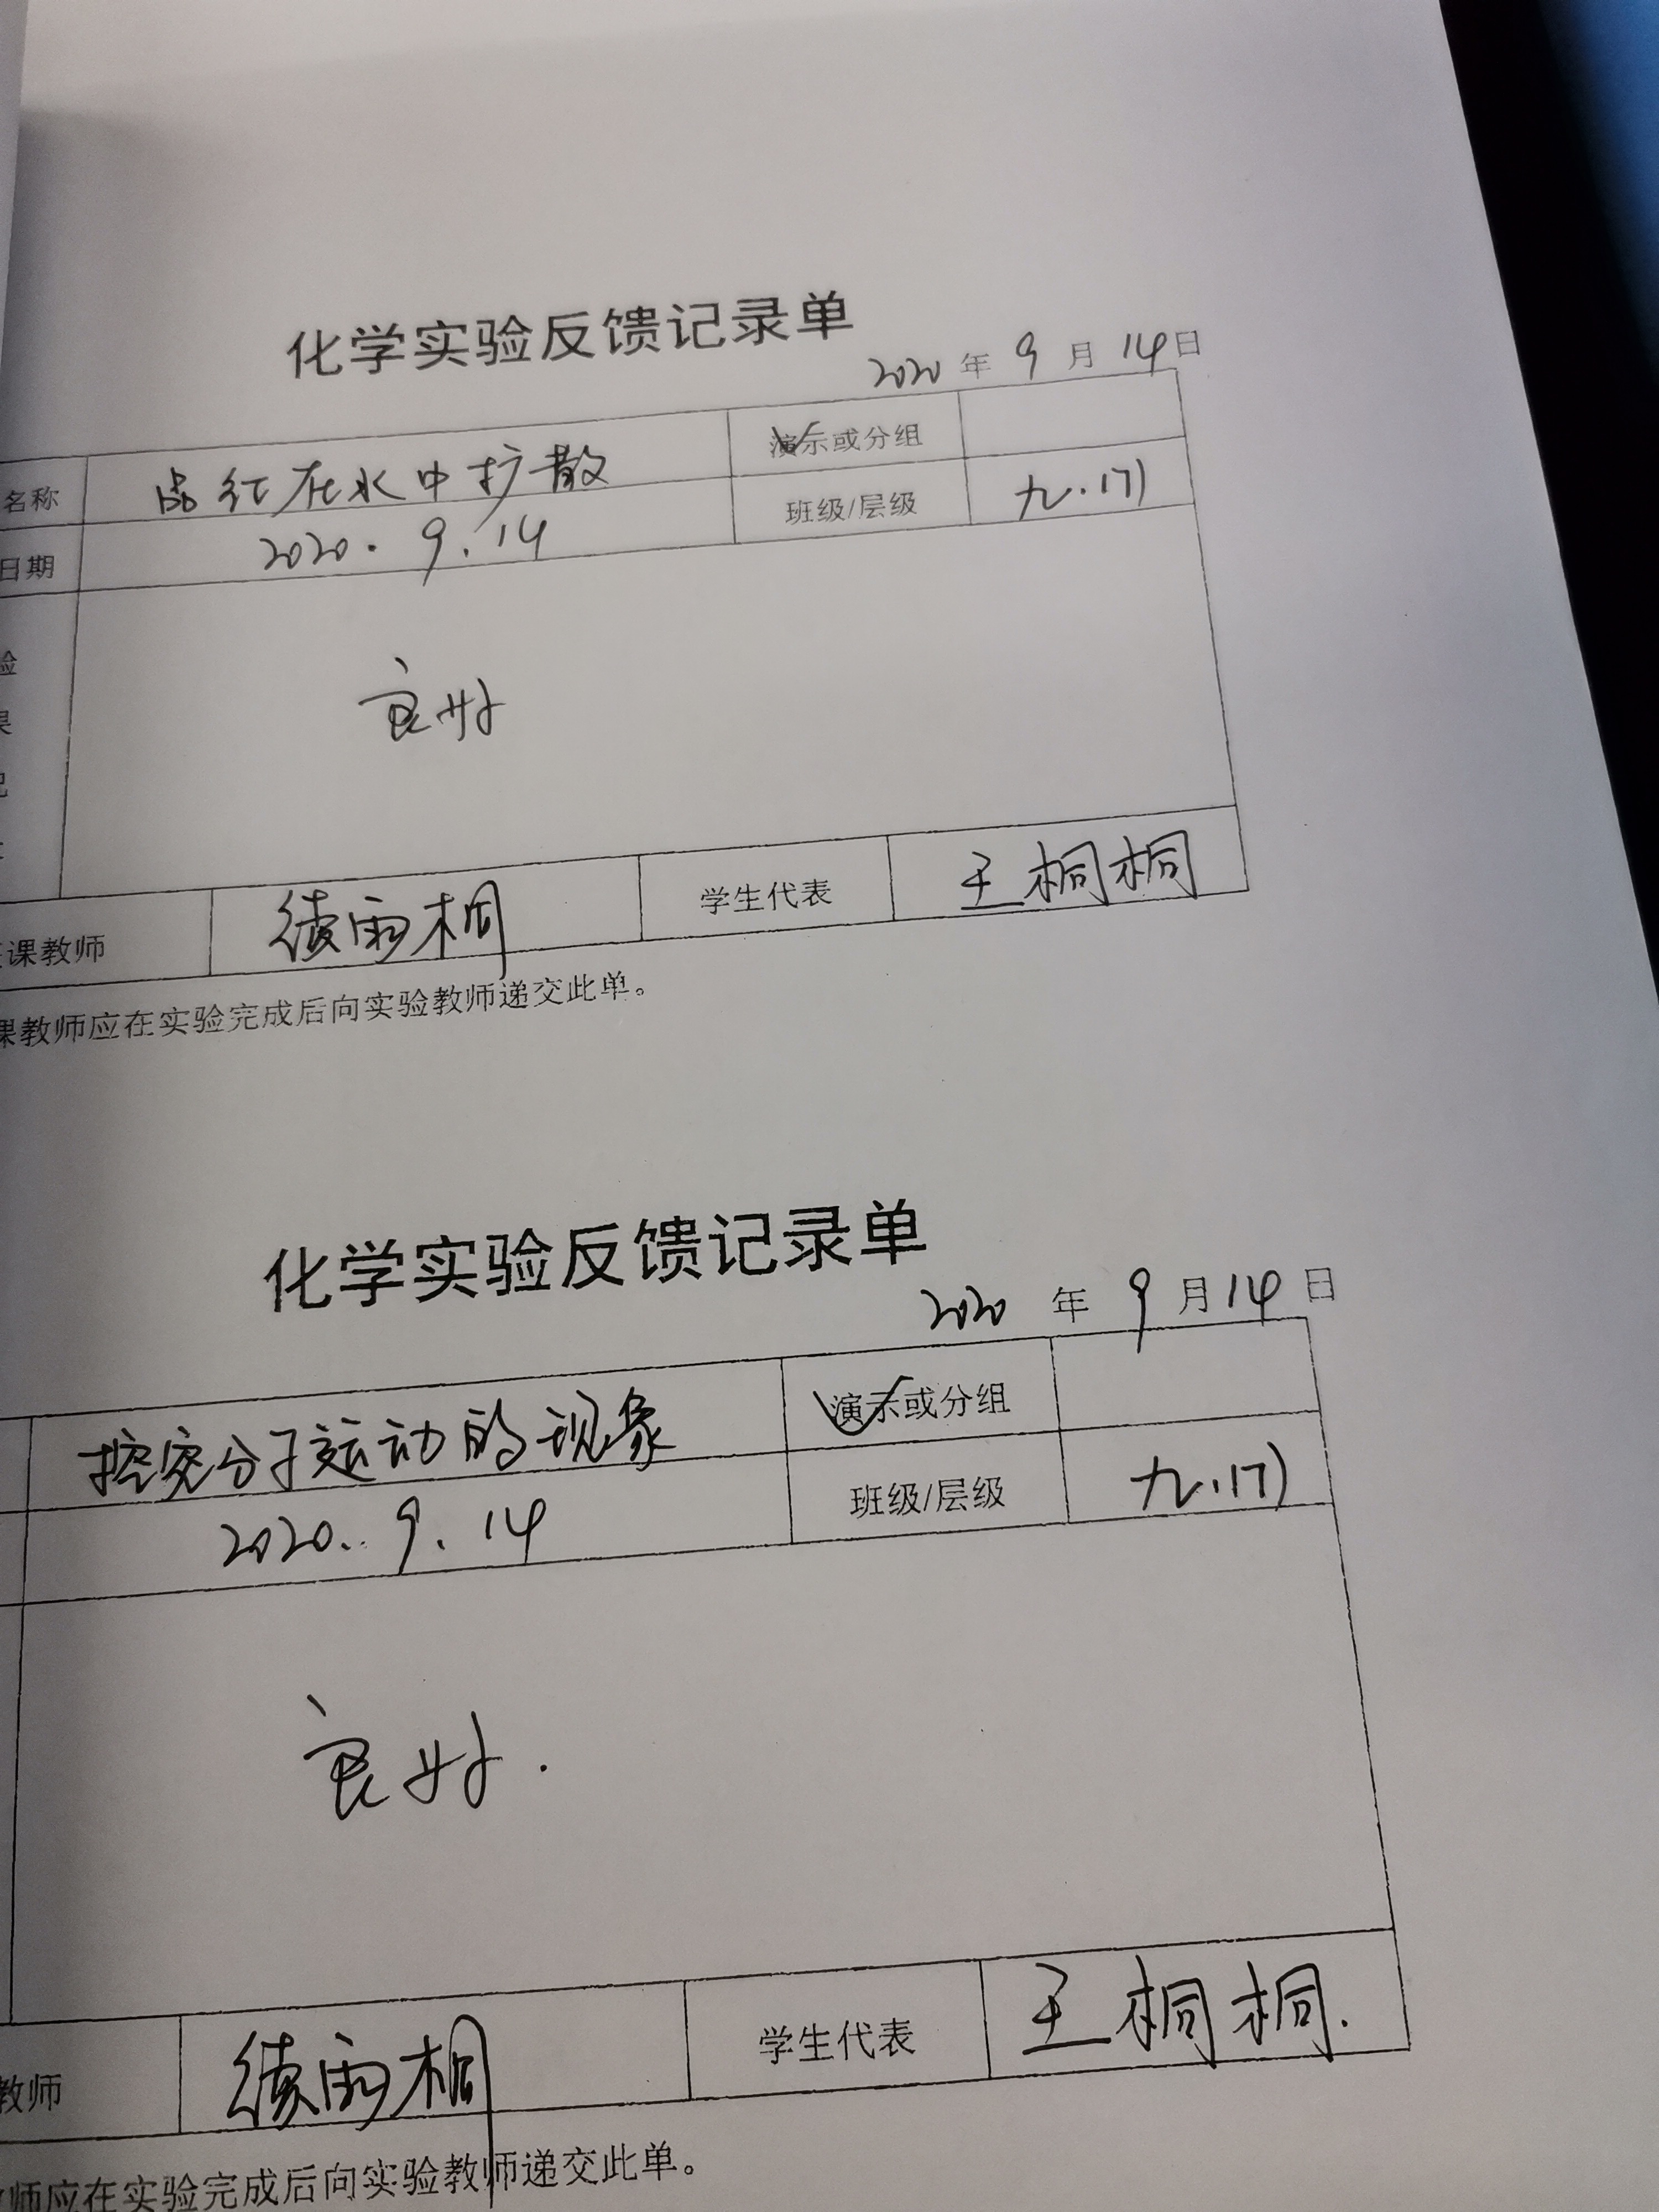 化学实验反馈记录单
2020 年 9 月 14 日
名称 品红在水中扩散 演示或分组
日期 2020.9.14 班级/层级 九.17)
验
果
良好
课教师 续雨桐 学生代表 王桐桐
课教师应在实验完成后向实验教师递交此单。
化学实验反馈记录单
2020 年 9 月 14 日
探究分子运动的现象 演示或分组
2020..9.14 班级/层级 九.17)
良好.
教师 续雨桐 学生代表 王桐桐.
师应在实验完成后向实验教师递交此单。